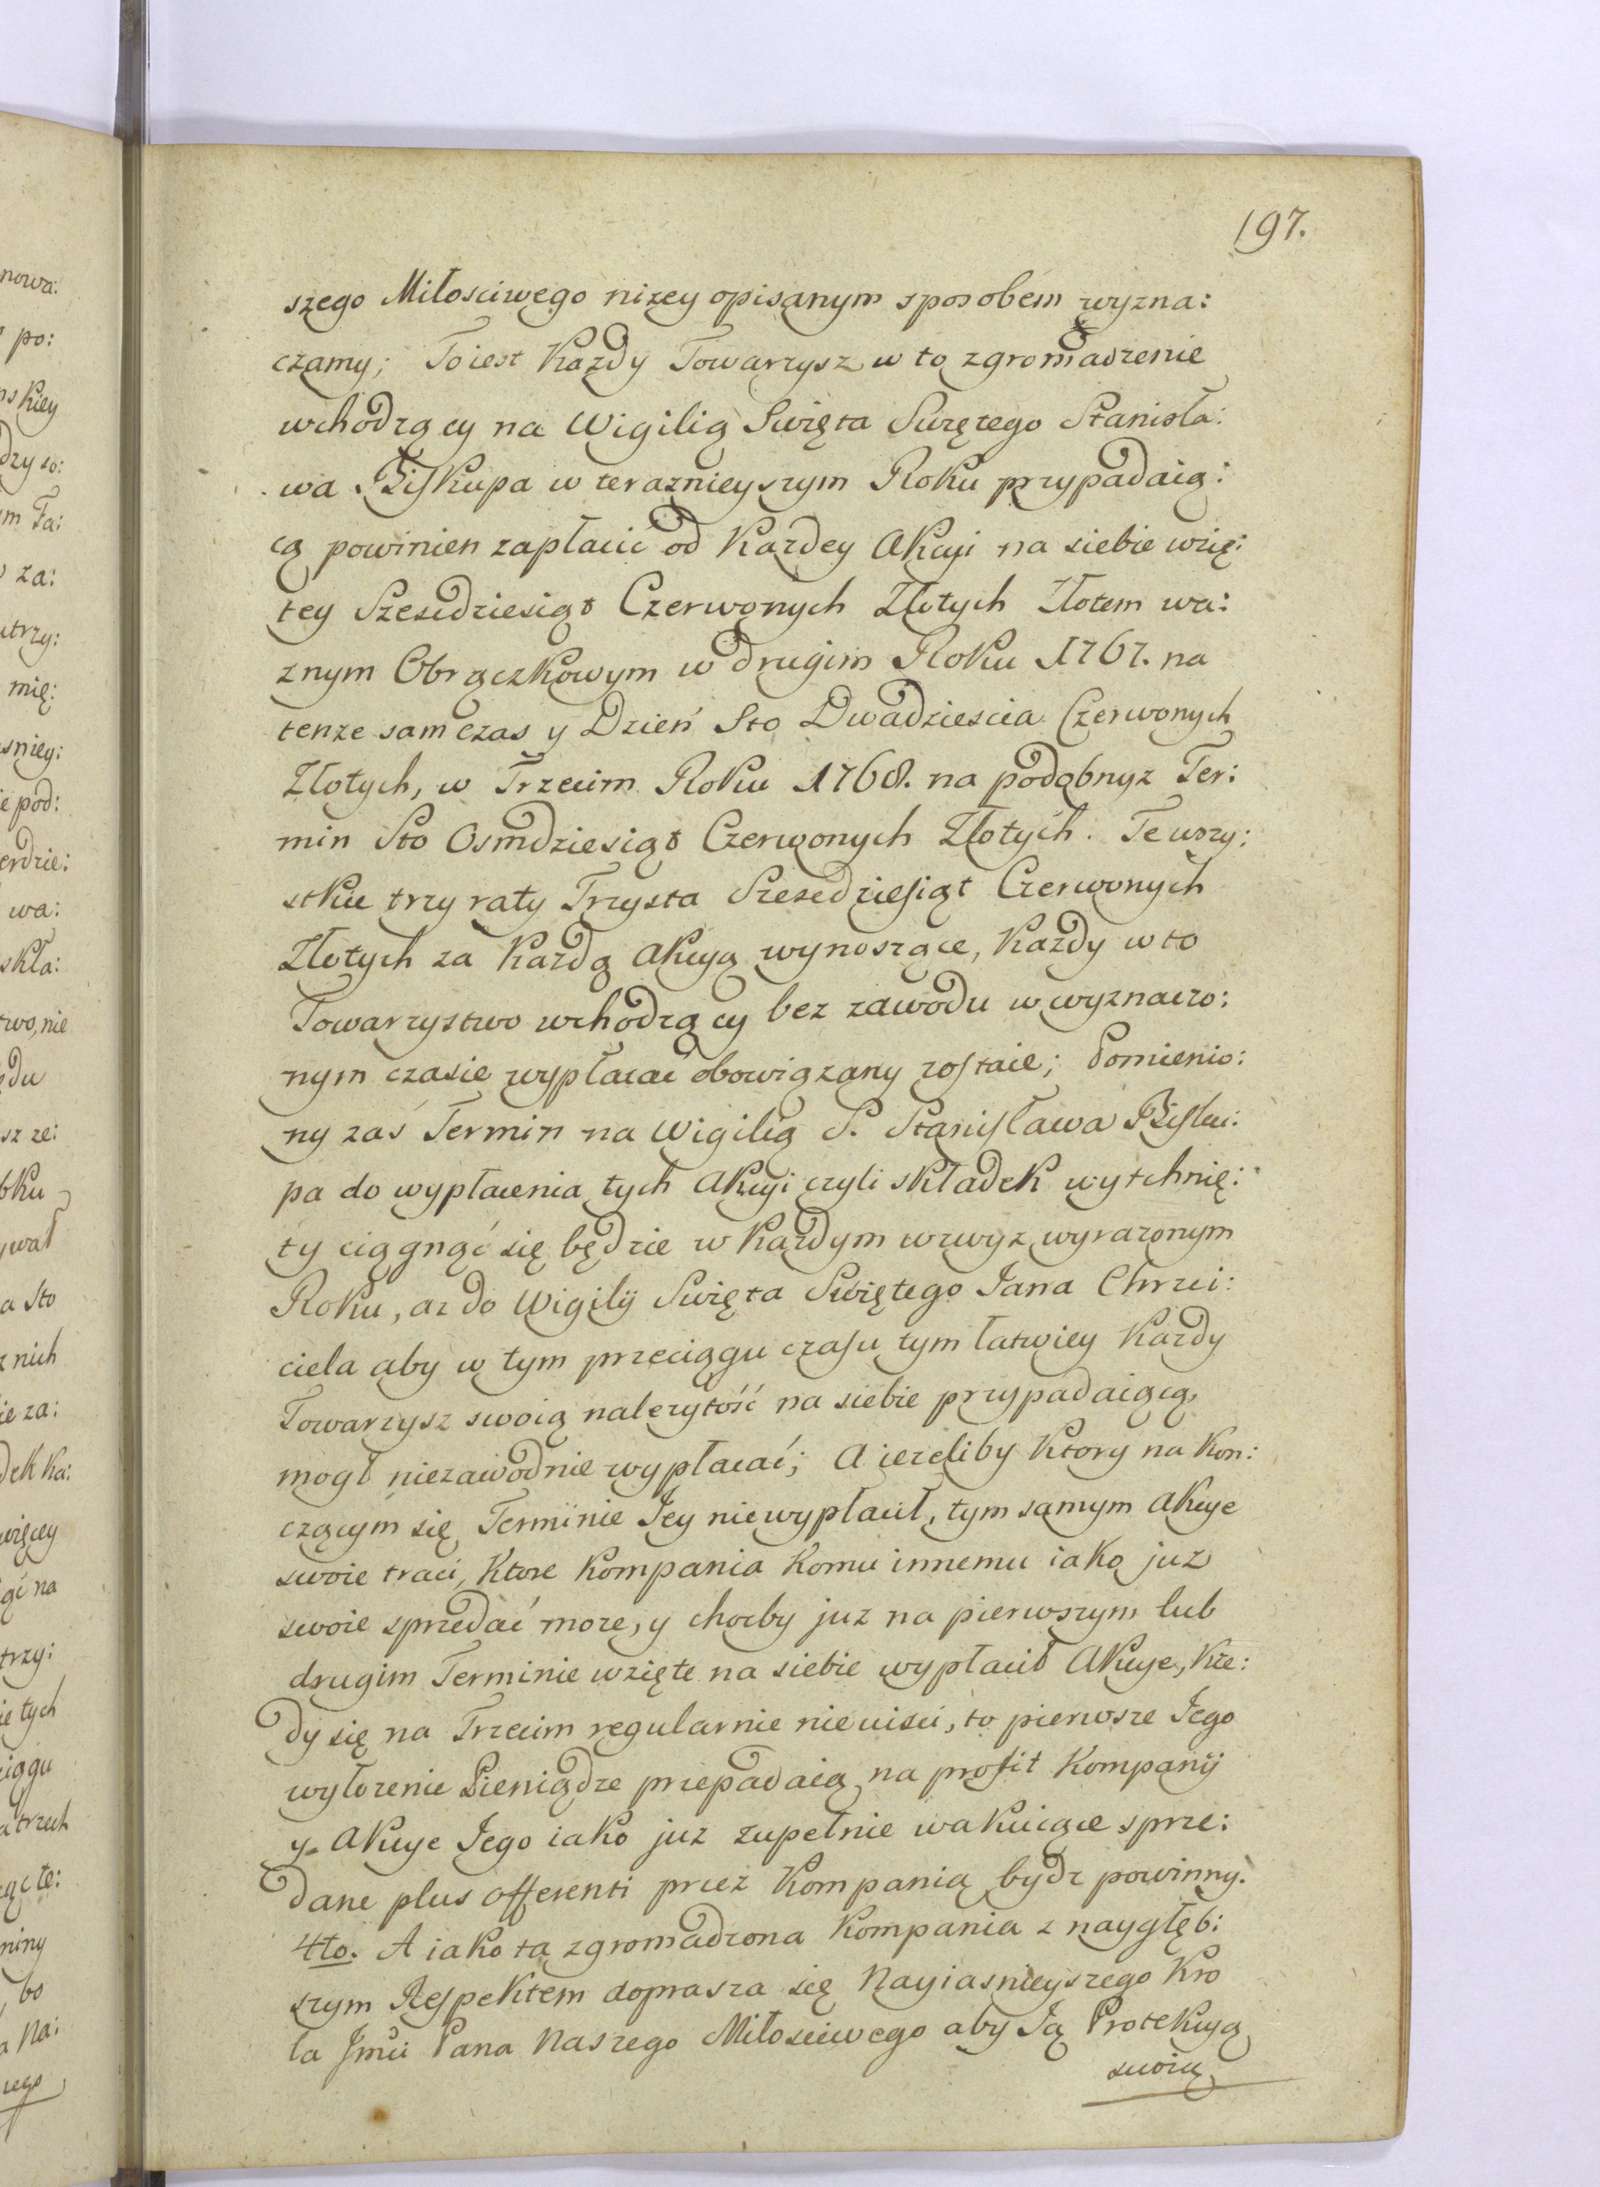 197.
szego Miłosciwego nizey opisanym sposobem wyzna:
czamy; To iest Kazdy Towarzysz w to zgromadzenie
wchodzący na Wigilią Swięta Swiętego Stanisła:
wa Biskupa w teraznieyszym Roku przypadaią:
cą powinien zapłacić od Kazdey Akcyi na siebie wzię:
tey Szescdziesiąt Czerwonych Złotych Złotem wa:
znym Obrączkowym w drugim Roku 1767. na
tenze sam czas y Dzień Sto Dwadziescia Czerwonych
Złotych, w Trzecim Roku 1768. na podobnyz Ter:
min Sto Osmdziesiąt Czerwonych Złotych. Te wszy:
stkie trzy raty Trzysta Szescdziesiąt Czerwonych
Złotych za Kazdą Akcyą wynoszące, Kazdy w to
Towarzystwo wchodzący bez zawodu w wyznaczo:
nym czasie wypłacać obowiązany zostaie; Pomienio:
ny zaś Termin na Wigilią S. Stanisława Bisku:
pa do wypłacenia tych Akcyi czyli składek wytchnię:
ty ciągnąć się będzie w Kazdym wzwyz wyrazonym
Roku, az do Wigilij Swięta Swiętego Jana Chrzci:
ciela aby w tym przeciągu czasu tym łatwiey Kazdy
Towarzysz swoią nalezytość na siebie przypadaiącą
mogł niezawodnie wypłacać; A iezeliby Ktory na Kon:
czącym się Terminie Jey niewypłacił, tym samym Akcye
swoie traci, Ktore Kompania Komu innemu iako juz
swoie sprzedać moze, y chocby juz na pierwszym lub
drugim Terminie wzięte na siebie wypłacił Akcye, Kie:
dy się na Trzecim regularnie nieuisci, to pierwsze Jego
wyłozenie Pieniądze przepadaią na profit Kompanij
y Akcye Jego iako juz zupełnie wakuiące sprze:
dane plus offerenti przez Kompanią bydz powinny.
4to. A iako ta zgromadzona Kompania z naygłęb:
szym Respektem doprasza się Nayiasnieyszego Kro
la Jmci Pana Naszego Miłosciwego aby Ją Protekcyą
swoią